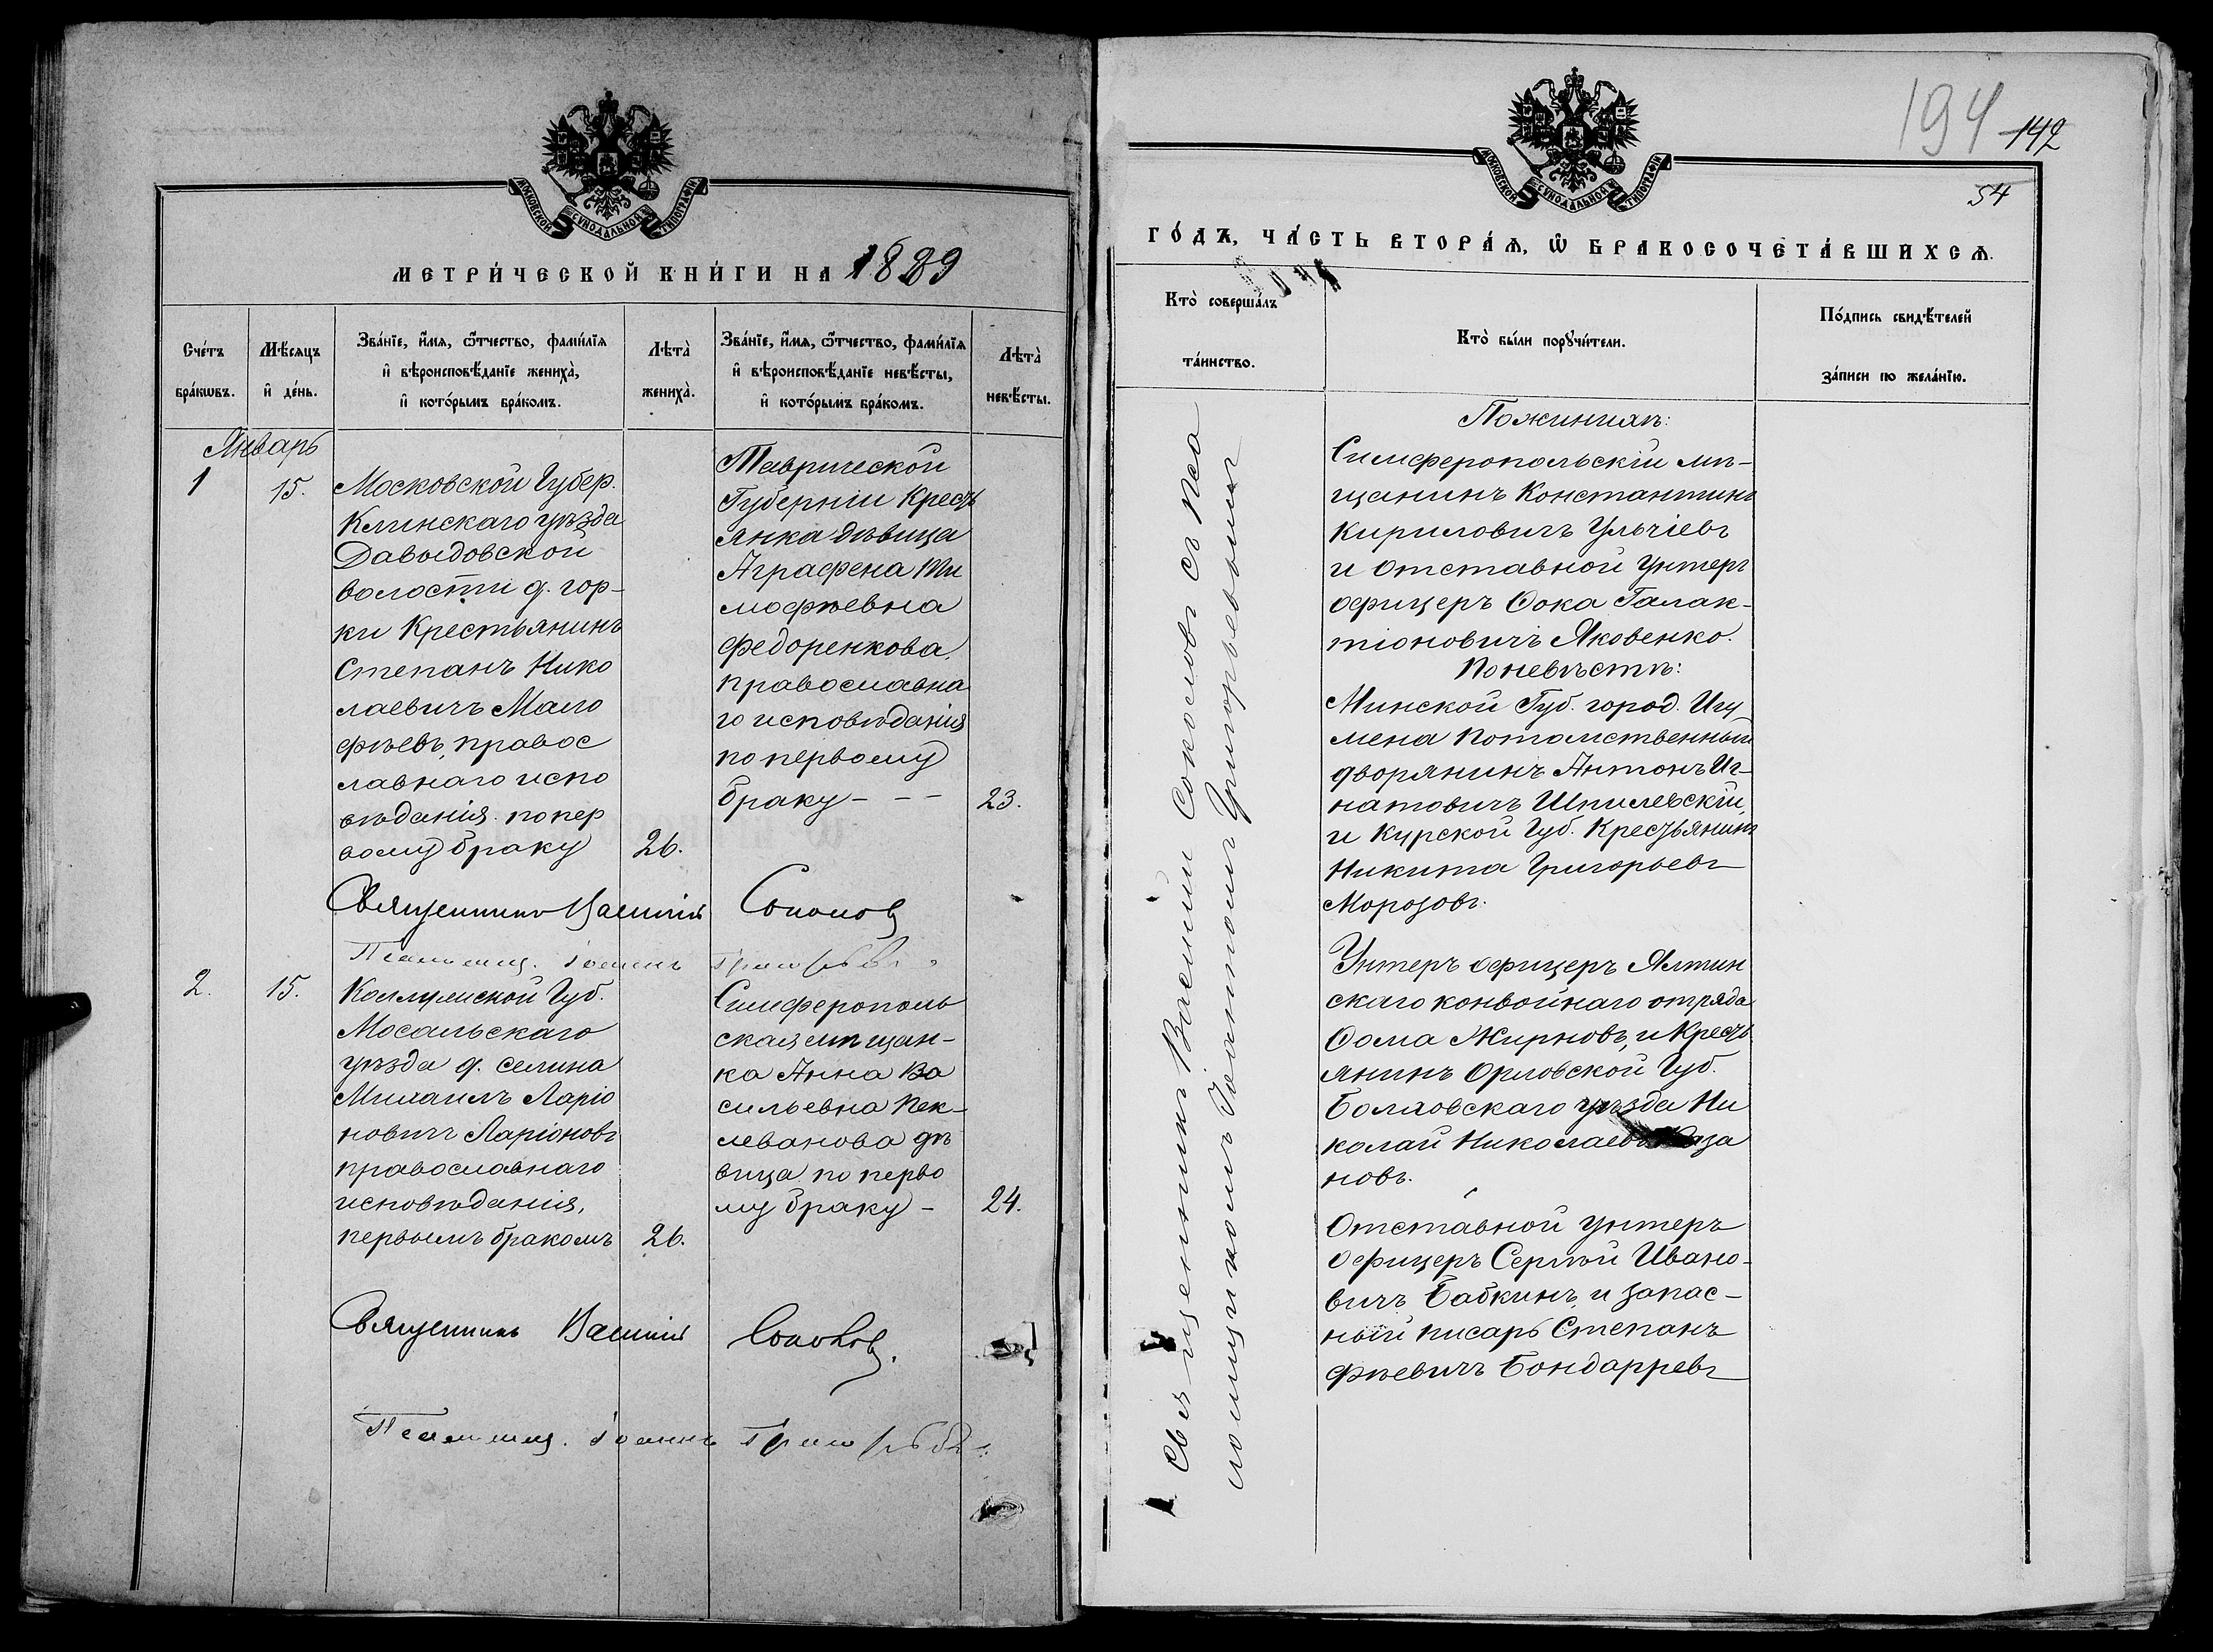 МОСКОВСКОЙ СΥНОДАЛЬНОЙ ТИПОГРАФІИ
МЕТРИ́ЧЕСКОЙ КНИ́ГИ НА 1889
Сче́тъ
бра́кѡвъ.
Мѣ́сяцъ
и҆ де́нь.
Зва́нїе, и҆́мѧ, ѻ҆́тчество, фами́лїѧ
и҆ вѣроисповѣ́данїе жениха̀,
и҆ кото́рымъ бра́комъ.
Лѣта̀
жениха̀.
Зва́нїе, и҆́мѧ, ѻ҆́тчество, фами́лїѧ
и҆ вѣроисповѣ́данїе невѣ́сты,
и҆ кото́рымъ бра́комъ.
Лѣта̀
невѣ́сты.
Январь
1
15.
Московской Губер.
Клинскаго уѣзда
Давыдовской
волости д. гор-
ки Крестьянинъ
Степанъ Нико
лаевичъ Мало
фѣевъ, правос
лавнаго испо
вѣданія. попер
вому браку
26.
Таврической
Губерніи Кресть
янка дѣвица
Аграфена Ти
мофѣевна
Федоренкова,
православна
го исповѣданія
по первому
браку - - -
23.
Священникъ Василій Соколовъ
Псаломщ. Іоаннъ Григорьевъ.
2.
15.
Калужской Губ.
Мосальскаго
уѣзда д. селина
Михаилъ Ларіо
новичъ Ларіоновъ
православнаго
исповѣданія,
первымъ бракомъ
26.
Симферополь
ская мѣщан-
ка Анна Ва
сильевна Пек-
леванова дѣ
вица по перво
му браку -
24.
Священникъ Василій Соколовъ.
Псаломщ. Іоаннъ Григорьевъ.
194
142
54
МОСКОВСКОЙ СΥНОДАЛЬНОЙ ТИПОГРАФІИ
ГО́ДЪ, ЧА́СТЬ ВТОРА́Ѧ, Ѡ҆ БРАКОСОЧЕТА́ВШИХСѦ.
Кто̀ соверша́лъ
та́инство.
Кто̀ бы́ли порꙋчи́тели.
По́дпись свидѣ́телей
за́писи по жела́нїю.
Священникъ Василій Соколовъ съ Пса
ломщикомъ Іоанномъ Григорьевымъ
По женихѣ:
Симферопольскій мѣ-
щанинъ Константинъ
Кириловичъ Ульчіевъ
и отставной Унтеръ
офицеръ Фока Галак-
тіоновичъ Яковенко.
По невѣстѣ:
Минской Губ. город. Игу
мена Потомственный
дворянинъ Антонъ Иг-
натовичъ Шпилевскій,
и Курской Губ. Крестьянинъ
Никита Григорьевъ
Морозовъ.
Унтеръ офицеръ Ялтин
скаго конвойнаго отряда
Фома Жирновъ, и Кресть
янинъ Орловской Губ.
Болховскаго уѣзда Ни
колай Николаевъ Каза
новъ.
Отставной унтеръ
офицеръ Сергѣй Ивано-
вичъ Бабкинъ, и запас-
ный писарь Степанъ
фѣевичъ Бондарревъ